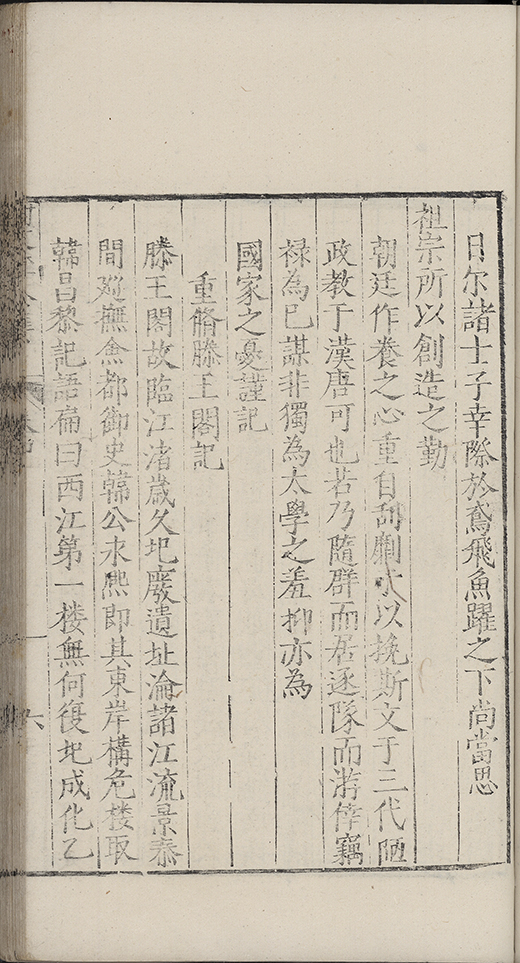 日尔諸士子幸際於鳶飛魚躍之下尚當思
祖宗所以創造之勤
朝廷作養之心重自刮劘求以挽斯文于三代陋
政教于漢唐可也若乃隨群而居逐隊而游倖竊
禄為已謀非獨為太學之羞抑亦為
國家之憂謹記
重脩滕王閣記
滕王閣故臨江渚歲久圮廢遺址淪諸江流景泰
間廵撫僉都御史韓公永熈即其東岸構危楼取
韓昌黎記語扁曰西江第一楼無何復圮成化乙
六